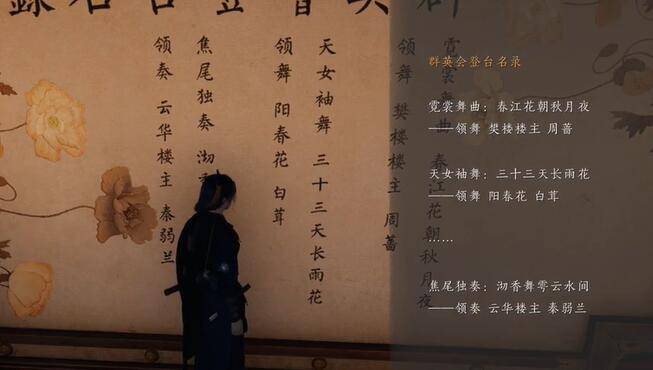 群英会登台名录
霓裳舞曲：春江花朝秋月夜
——领舞 樊楼楼主 周蔷
天女袖舞：三十三天长雨花
——领舞 阳春花 白茸
……
焦尾独奏：沏香舞雩云水间
——领奏 云华楼主 秦弱兰
霓裳舞曲 春江花朝秋月夜
领舞 樊楼楼主 周蔷
天女袖舞 三十三天长雨花
领舞 阳春花 白茸
焦尾独奏 沏
领奏 云华楼主 秦弱兰